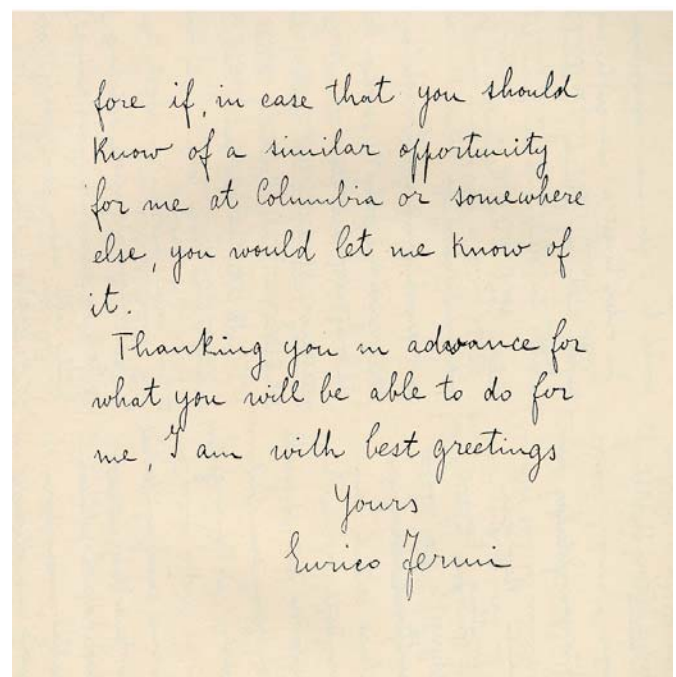 fore if, in case that you should
know of a similar opportunity
for me at Columbia or somewhere
else, you would let me know of
it.
Thanking you in advance for
what you will be able to do for
me, I am with best greetings
Yours
Enrico Fermi